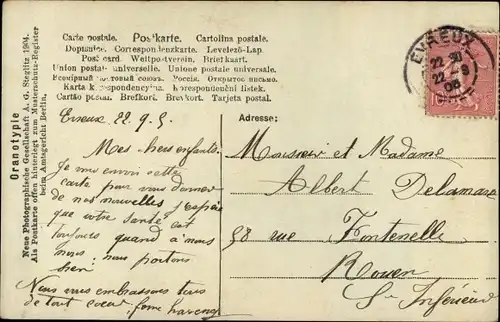 Carte postale. Postkarte. Cartolina postale.
Dopisnice. Correspondenzkarte. Levelező-Lap.
Post card. Weltpostverein. Briefkaart.
Union postale universelle. Unione postale universale.
Всемірный почтовый союзъ. Россія. Открытое письмо.
Karta korespondencyjna. Korespondenční lístek.
Cartão postal. Brefkort. Brevkort. Tarjeta postal.
Oranotypie
Neue Photographische Gesellschaft A. G. Steglitz 1904.
Als Postkarte offen hinterlegt zum Musterschutz-Register
beim Amtsgericht Berlin.
EVREUX
22 30
22 - 9
08
Evreux 22.9.8.
Mes chers enfants.
Je me envoi cette
carte pour vous donner
de nos nouvelles j'espère
que votre santé est
toujours quand à nous
nous nous portons
bien.
Nous vous embrassons tous
de tout coeur,
Adresse:
Monsieur et Madame
Albert Delamare
58 rue Fontenelle
Rouen
Sne Inférieure